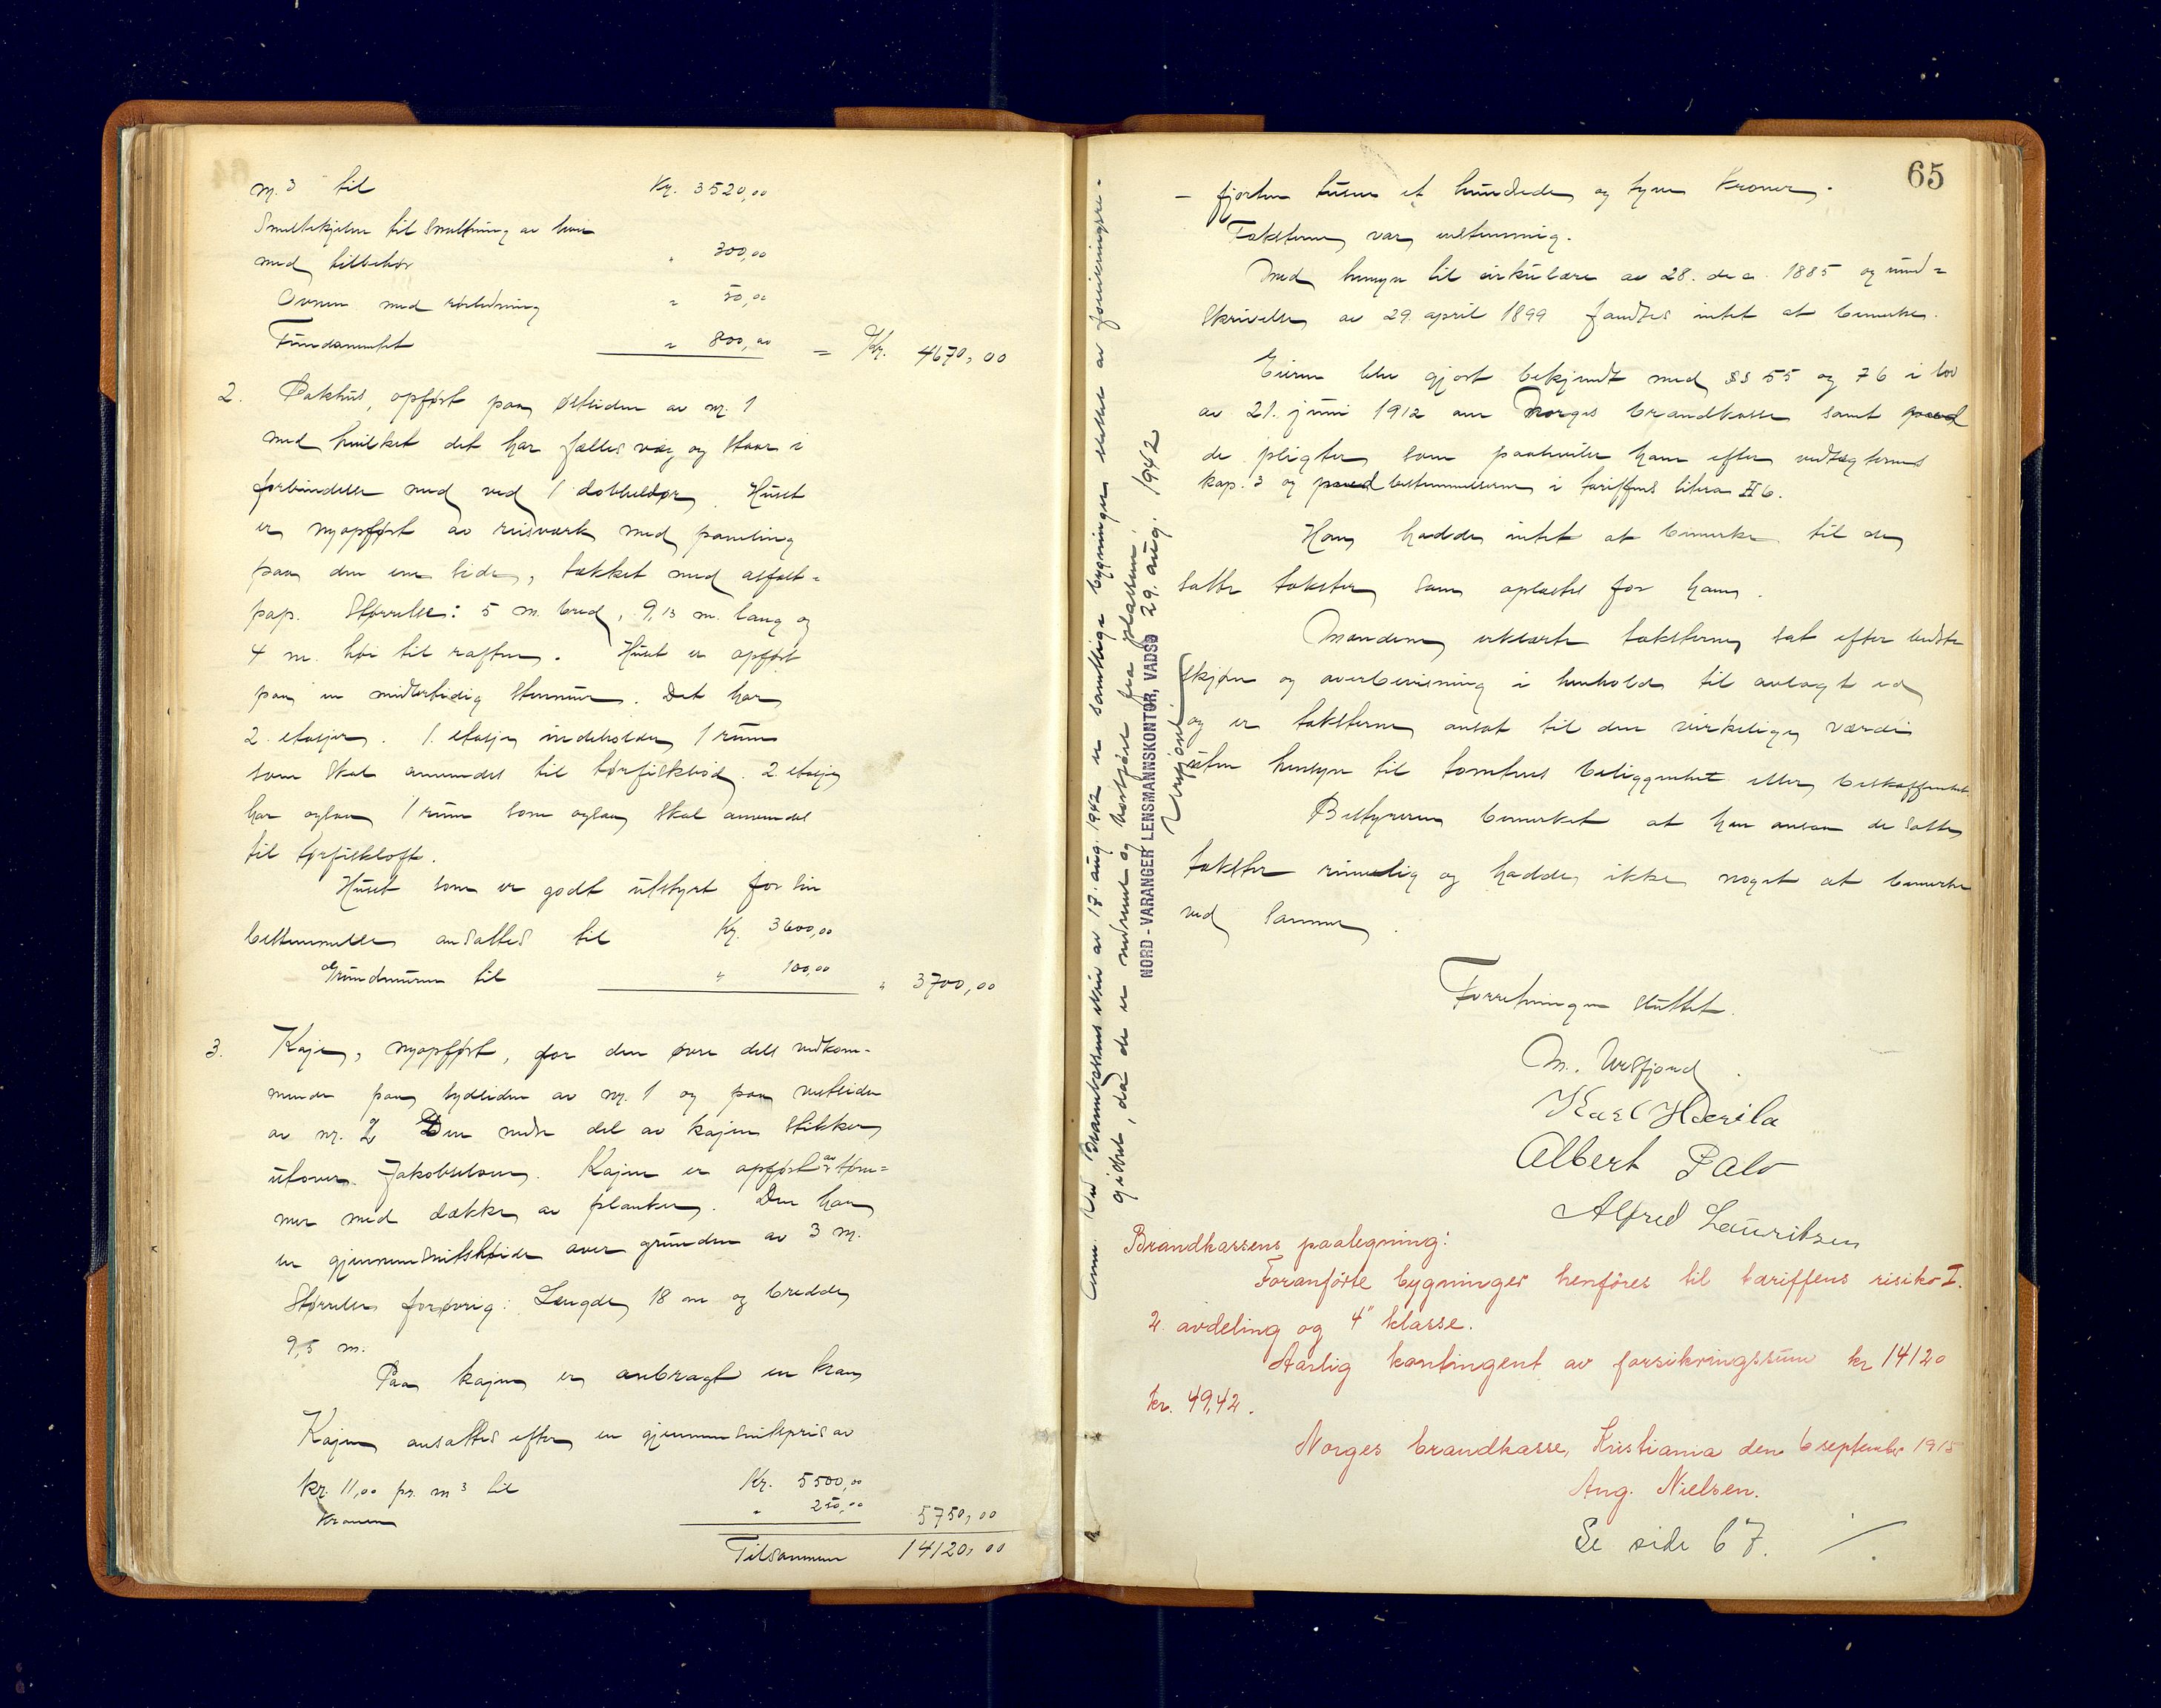 m.3 til Kr. 3520,00
Smeltekjelen til smeltning av
med tilbehør " 300,00
Ovnen med rørledning " 50,00
Fundamentet " 800,00 = Kr. 4670,00
2. Pakhus, opført paa østsiden av nr. 1
med hvilket det har fælles væg og staar i
forbindelse med ved 1 dobbeldør. Huset
er nyopført av reisverk med paneling
paa den ene side, tækket med asfalt-
pap. Størrelse: 5 m. bred, 9,13 m. lang og
4 m. høi til raften. Huset er opført
paa en midlertidig stenmur. Det har
2 etasjer. 1. etasje indeholder 1 rum
som skal anvendes til tørfiskbod. 2 etasje
har ogsaa 1 rum som ogsaa skal anvendes
til tørfiskloft.
Huset som er godt utstyrt for sin
bestemmelse ansattes til Kr. 3600,00
Grundmuren til " 100,00 " 3700,00
3. Kajen, nyopført, for den øvre dels vedkom-
mende paa sydsiden av nr. 1 og paa vestsiden
av nr. 2 Den nedre del av kajen stikker
utover Jakobselven. Kajen er opført av tøm-
mer med dække av planker. Den har
en gjennemsnitshøide over grunden av 3 m.
Størrelse forøvrig: Længde 18 m og bredde
9,5 m.
Paa kajen er anbragt en kran
Kajen ansattes efter en gjennemsnitspris av
kr. 11,00 pr. m3 til Kr. 5500,00
Kranen " 250,00 5750,00
Tilsammen 14120,00
65
- fjorten tusen et hundrede og tyve kroner.
Taksterne var enstemmig.
Med hensyn til cirkulære av 28. dec. 1885 og rund-
skrivelse av 29. april 1899 fandtes intet at bemerke.
Eieren blev gjort bekjendt med §§ 55 og 76 i lov
av 21. juni 1912 om Norges brandkasse samt med
de pligter som paahviler ham efter vedtægternes
kap. 3 og med bestemmelserne i tariffens litera H 6.
Han hadde intet at bemerke til de
satte takster som oplæstes for ham.
Mændene erklærte taksterne sat efter bedste
skjøn og overbevisning i henhold til avlagt ed
og er taksterne ansat til den virkelige værdi
uten hensyn til tomtens beliggenhet eller beskaffenhet.
Bestyreren bemerket at han ansaa de satte
takster rimelig og hadde ikke noget at bemerke
ved samme.
Forretningen sluttet.
M. Vesfjord.
Karl Hderila
Albert Palo
Alfred Lauritsen
Brandkassens paategning:
Foranförte bygninger henföres til tariffens risiko I.
2. avdeling og 4" klasse.
Aarlig kontingent av forsikringssum kr 14120
kr. 49,42.
Norges brandkasse, Kristiania den 6 september 1915
Aug. Nielsen.
Se side 67. ./.
Anm. Ved Brandkassens skriv av 17. aug. 1942 er samtlige bygninger slettet av forsikringsre-
gistret, da de er nedrevet og bortført fra plassen.
NORD-VARANGER LENSMANNSKONTOR, VADSØ 29. aug. 1942